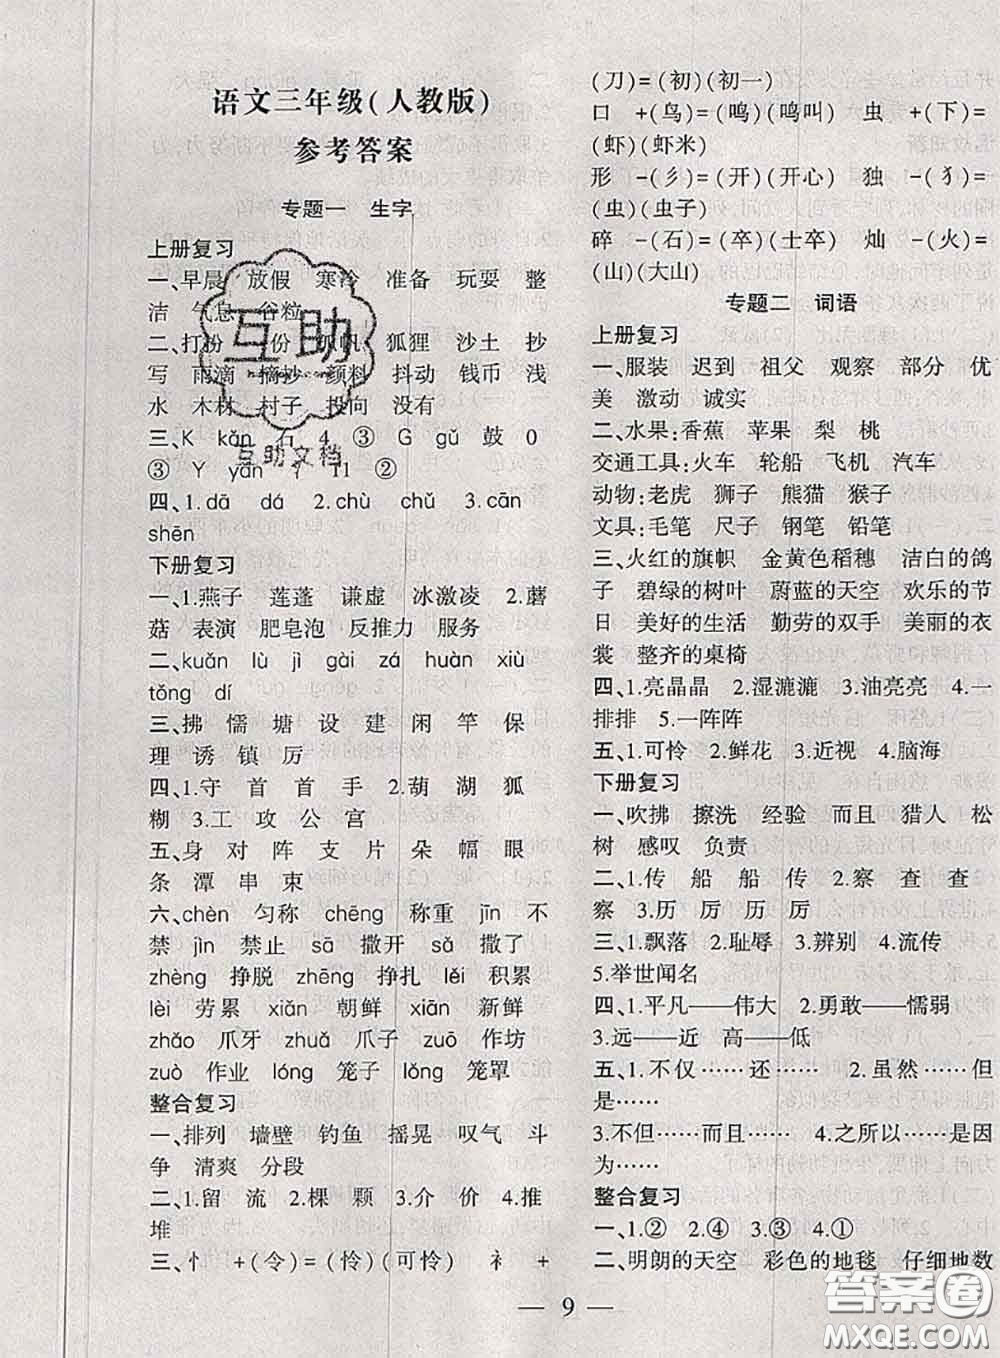 语文三年级(人教版)
参考答案
专题一 生字
上册复习
一、早晨 放假 寒冷 准备 玩耍 整
洁 气息 谷粒
二、打扮 份 帆 狐狸 沙土 抄
写 雨滴 摘抄 颜料 抖动 钱币 浅
水 木材 村子 投向 没有
三、K kǎn 石 4 ③ G gǔ 鼓 0
③ Y 11 ②
四、1.dā dá 2.chù chǔ 3.cān
shēn
下册复习
一、1.燕子 莲蓬 谦虚 冰激凌 2.蘑
菇 表演 肥皂泡 反推力 服务
二、kuǎn lù jì gài zá huàn xiù
tǒng dí
三、拂 懦 塘 设 建 闲 竿 保
理 诱 镇 厉
四、1.守 首 首 手 2.葫 湖 狐
糊 3.工 攻 公 宫
五、身 对 阵 支 片 朵 幅 眼
条 潭 串 束
六、chèn 匀称 chēng 称重 jīn 不
禁 jìn 禁止 sā 撒开 sǎ 撒了
zhèng 挣脱 zhēng 挣扎 lěi 积累
lèi 劳累 xiǎn 朝鲜 xiān 新鲜
zhǎo 爪牙 zhuǎ 爪子 zuō 作坊
zuò 作业 lóng 笼子 lǒng 笼罩
整合复习
一、排列 墙壁 钓鱼 摇晃 叹气 斗
争 清爽 分段
二、1.留 流 2.棵 颗 3.介 价 4.推
堆
三、忄 +(令)=(怜)(可怜) 衤 +
(刀)=(初)(初一)
口 +(鸟)=(鸣)(鸣叫) 虫 +(下)=
(虾)(虾米)
形 -(彡)=(开)(开心) 独 -(犭)=
(虫)(虫子)
碎 -(石)=(卒)(士卒) 灿 -(火)=
(山)(大山)
专题二 词语
上册复习
一、服装 迟到 祖父 观察 部分 优
美 激动 诚实
二、水果:香蕉 苹果 梨 桃
交通工具:火车 轮船 飞机 汽车
动物:老虎 狮子 熊猫 猴子
文具:毛笔 尺子 钢笔 铅笔
三、火红的旗帜 金黄色稻穗 洁白的鸽
子 碧绿的树叶 蔚蓝的天空 欢乐的节
日 美好的生活 勤劳的双手 美丽的衣
裳 整齐的桌椅
四、1.亮晶晶 2.湿漉漉 3.油亮亮 4.一
排排 5.一阵阵
五、1.可怜 2.鲜花 3.近视 4.脑海
下册复习
一、吹拂 擦洗 经验 而且 猎人 松
树 感叹 负责
二、1.传 船 船 传 2.察 查 查
察 3.历 厉 历 厉
三、1.飘落 2.耻辱 3.辨别 4.流传
5.举世闻名
四、1.平凡——伟大 2.勇敢——懦弱
3.远——近 高——低
五、1.不仅……还…… 2.虽然……但
是……
3.不但……而且…… 4.之所以……是因
为……
整合复习
一、1.② 2.④ 3.③ 4.①
二、明朗的天空 彩色的地毯 仔细地数
— 9 —
互助
互助文档
答案圈
MXQE.COM